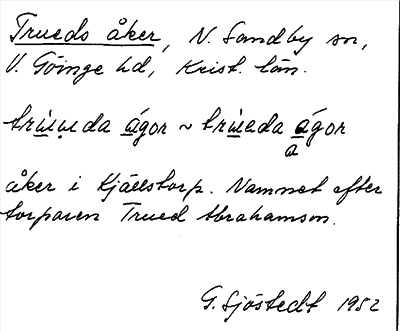 Trueds åker, N. Sandby sn,
V. Göinge hd, Krist. län.
åker i Kjällstorp. Namnet efter
torparen Trued Abrahamson.
G. Sjöstedt 1952